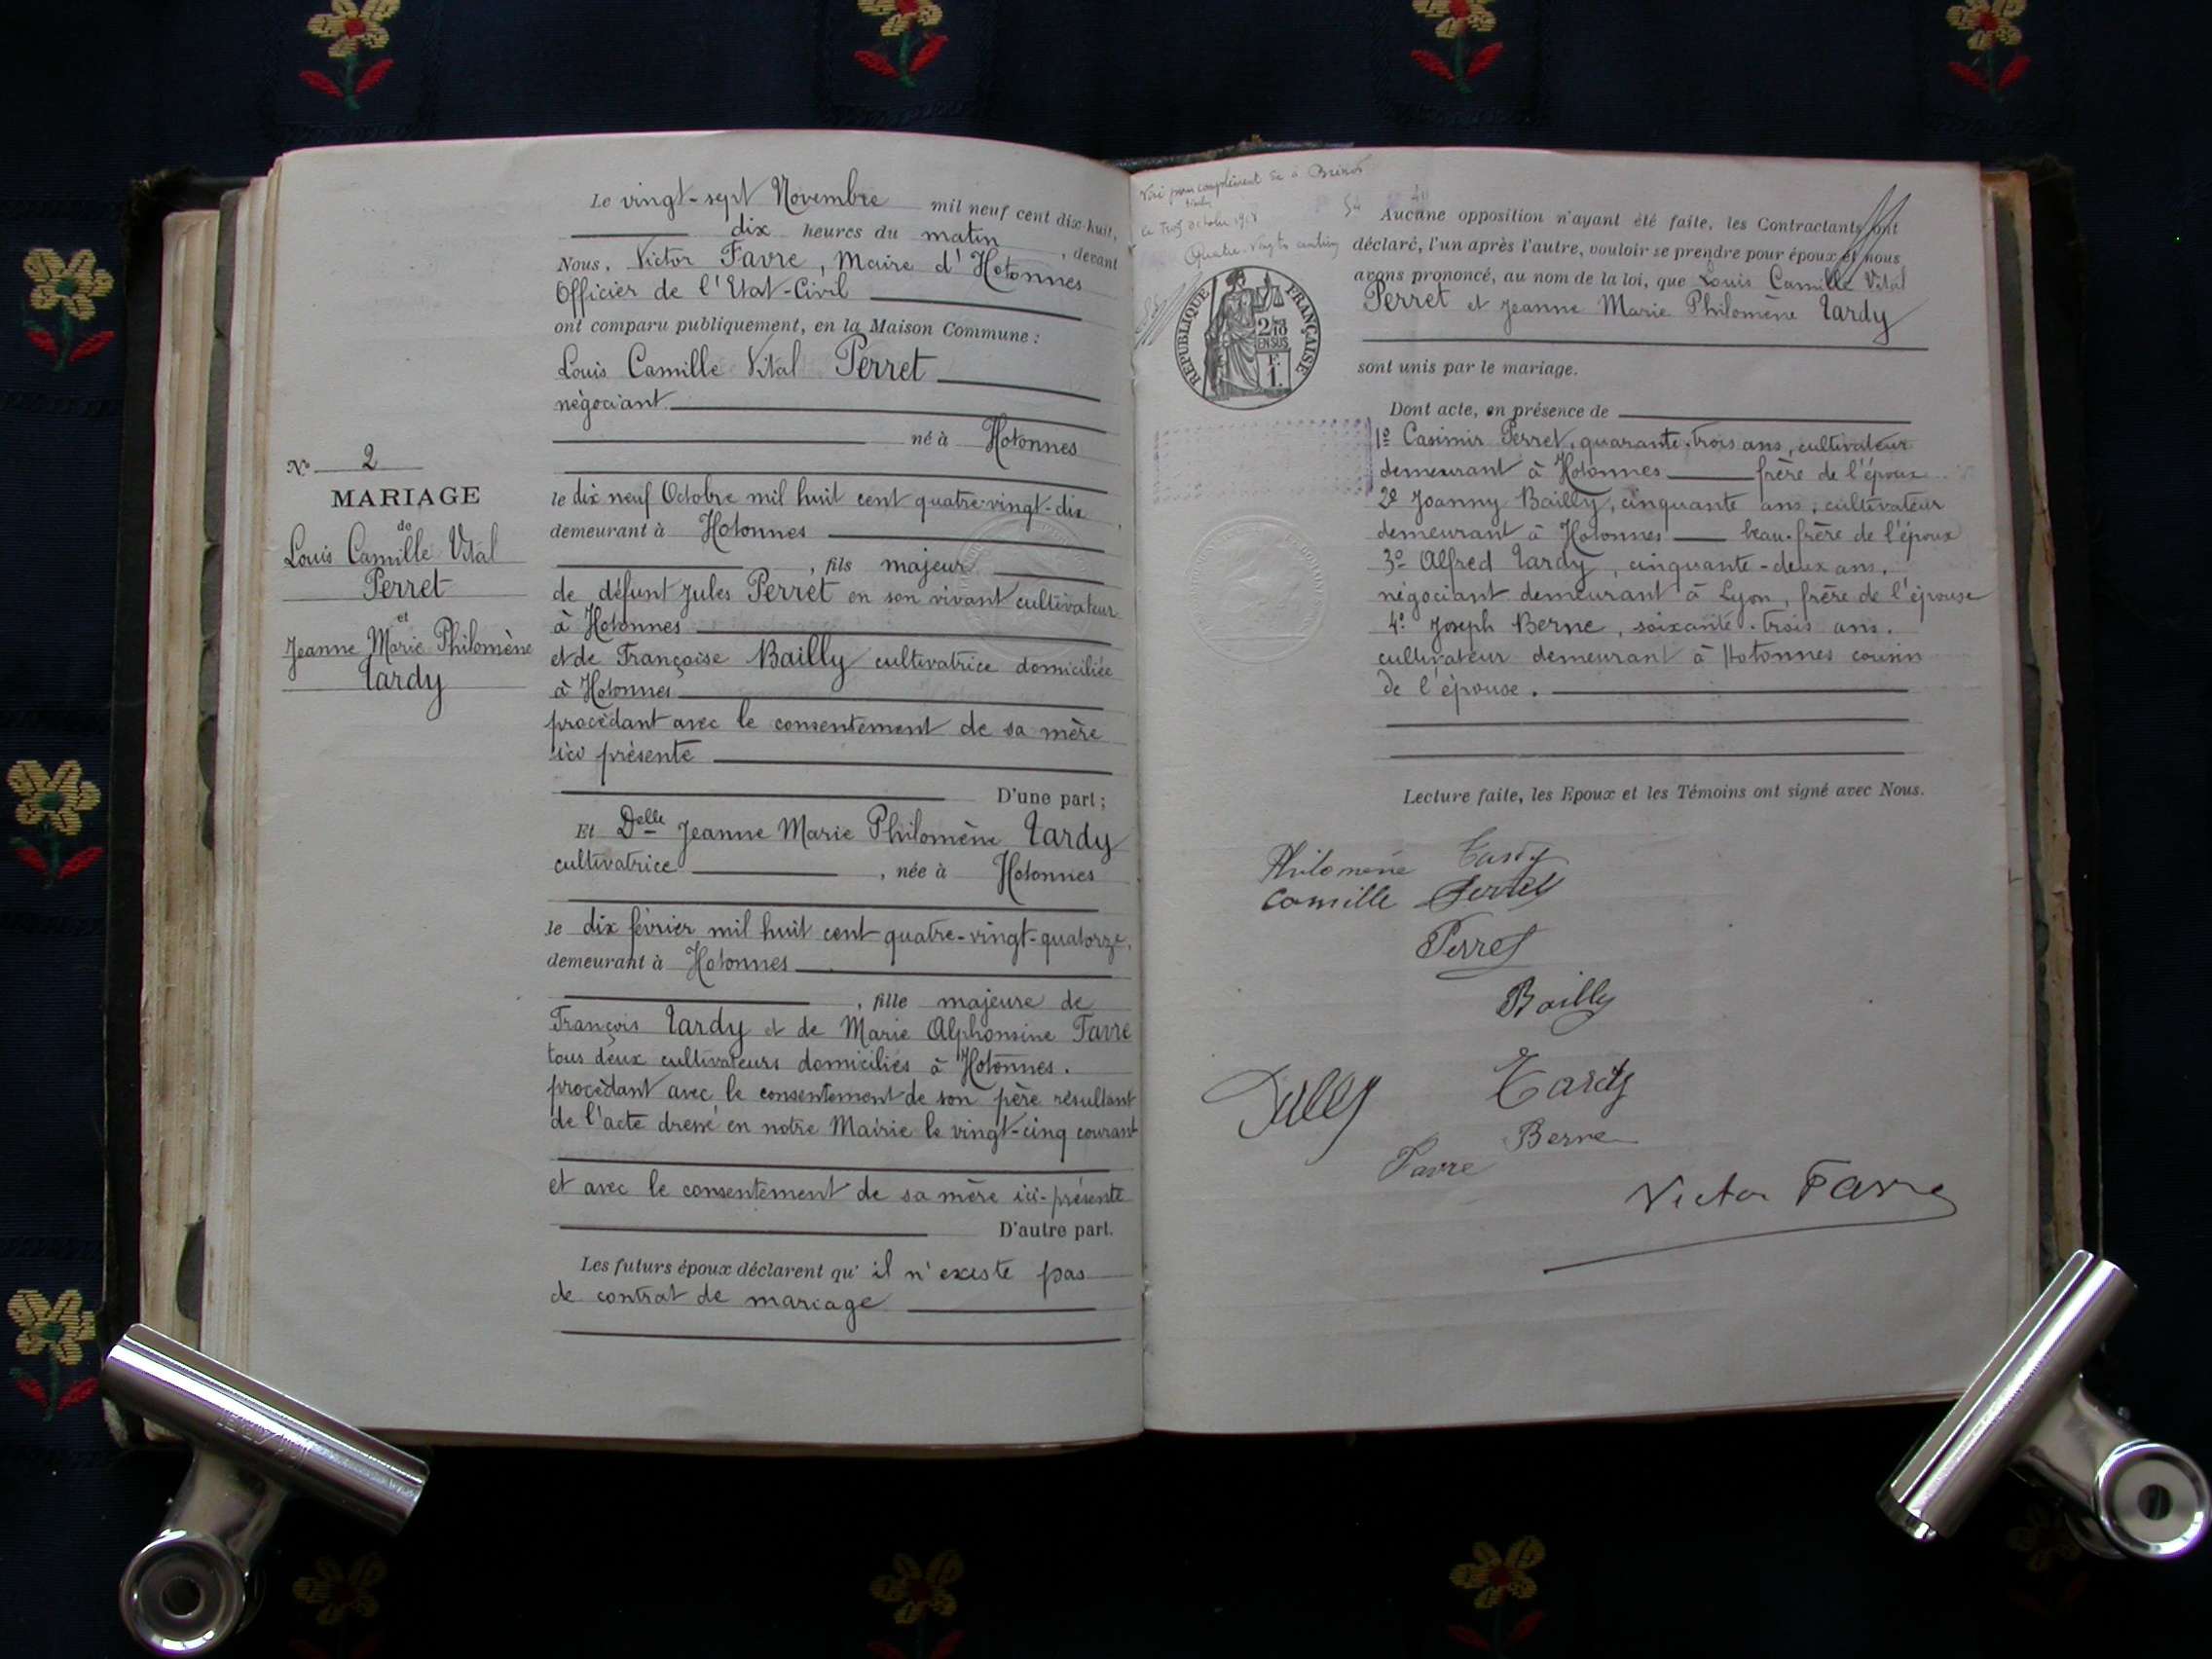 N° 2
MARIAGE
de
Louis Camille Vital
Perret
et
Jeanne Marie Philomène
Tardy
Le vingt-sept Novembre mil neuf cent dix-huit,
dix heures du matin, devant
Nous, Victor Favre, Maire d'Hotonnes
Officier de l'Etat-Civil
ont comparu publiquement, en la Maison Commune :
Louis Camille Vital Perret
négociant
né à Hotonnes
le dix neuf Octobre mil huit cent quatre-vingt-dix,
demeurant à Hotonnes
, fils majeur
de défunt Jules Perret en son vivant cultivateur
à Hotonnes
et de Françoise Bailly cultivatrice domiciliée
à Hotonnes
procédant avec le consentement de sa mère
ici présente
D'une part ;
Et Delle Jeanne Marie Philomène Tardy
cultivatrice, née à Hotonnes
le dix février mil huit cent quatre-vingt-quatorze,
demeurant à Hotonnes
, fille majeure de
François Tardy et de Marie Alphonsine Favre
tous deux cultivateurs domiciliés à Hotonnes.
procédant avec le consentement de son père résultant
de l'acte dressé en notre Mairie le vingt-cinq courant
et avec le consentement de sa mère ici-présente
D'autre part.
Les futurs époux déclarent qu'il n'existe pas
de contrat de mariage
Quatre-vingts
RÉPUBLIQUE FRANÇAISE
2/10
EN SUS
F.
1.
Aucune opposition n'ayant été faite, les Contractants ont
déclaré, l'un après l'autre, vouloir se prendre pour époux et nous
avons prononcé, au nom de la loi, que Louis Camille Vital
Perret et Jeanne Marie Philomène Tardy
sont unis par le mariage.
Dont acte, en présence de
1° Casimir Perret, quarante-trois ans, cultivateur
demeurant à Hotonnes frère de l'époux
2° Joanny Bailly, cinquante ans, cultivateur
demeurant à Hotonnes beau-frère de l'époux
3° Alfred Tardy, cinquante-deux ans,
négociant demeurant à Lyon, frère de l'épouse
4° Joseph Berne, soixante-trois ans,
cultivateur demeurant à Hotonnes cousin
de l'épouse.
Lecture faite, les Epoux et les Témoins ont signé avec Nous.
Philomène Tardy
Camille Perret
Perret
Bailly
Tardy
Berne
Favre
Victor Favre